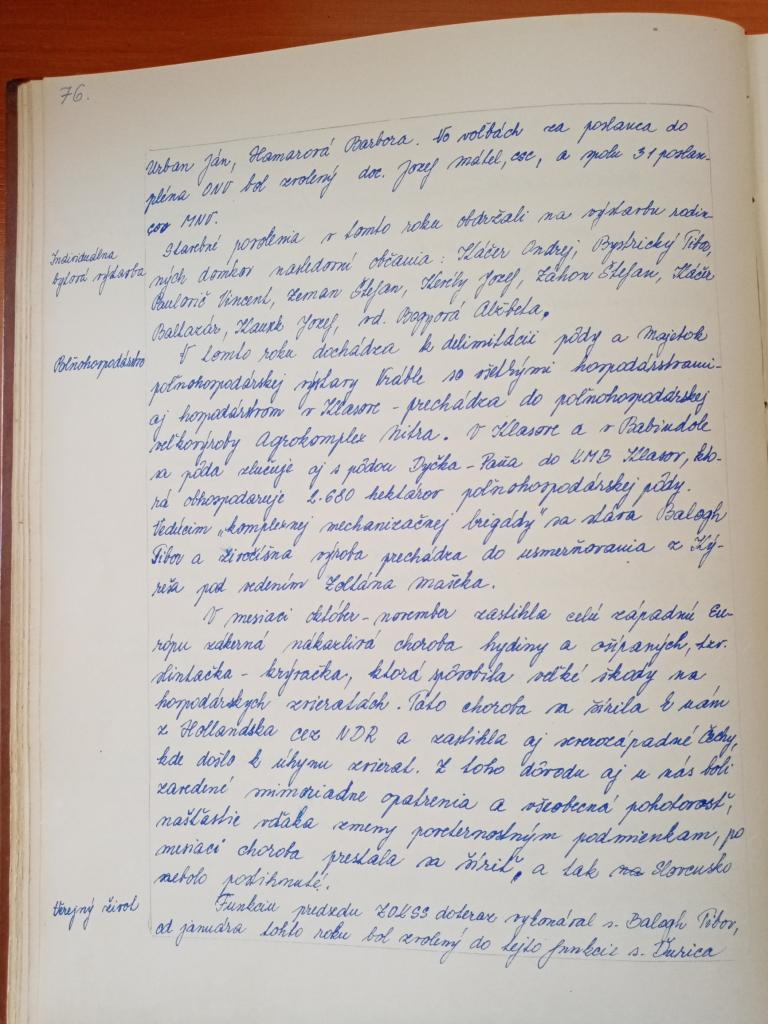 76.
Urban Ján, Hamarová Barbora. Vo voľbách za poslanca do
pléna ONV bol zvolený doc. Jozef Mátel, csc, a spolu 31 poslan-
cov MNV.
Individuálna
bytová výstavba
Stavebné povolenia v tomto roku obdržali na výstavbu rodin-
ných domkov nasledovní občania: Káčer Ondrej, Bystrický Tibor,
Paulovič Vincent, Zeman Štefan, Kevély Jozef, Záhon Štefan, Káčer
Baltazár, Jozef, vd. Alžbeta.
Poľnohospodárstvo
V tomto roku dochádza k delimitácii pôdy a Majetok
poľnohospodárskej výstavy Vráble so všetkými hospodárstvami-
aj hospodárstvom v Klasove - prechádza do poľnohospodárskej
veľkovýroby Agrokomplex Nitra. V Klasove a v Babindole
sa pôda zlučuje aj s pôdou Dyčka - Paňa do KMB Klasov, kto-
rá obhospodaruje 2.680 hektárov poľnohospodárskej pôdy.
Vedúcim "komplexnej mechanizačnej brigády" sa stáva Balogh
Tibor a živočíšna výroba prechádza do usmerňovania z Ký-
neša pod vedením Zoltána Mašeka.
V mesiaci október - november zastihla celú západnú Eu-
rópu zákerná nákazlivá choroba hydiny a ošípaných, tzv.
slintačka - krívačka, ktorá spôsobila veľké škody na
hospodárskych zvieratách. Táto choroba sa šírila k nám
z Hollandska cez NDR a zastihla aj severozápadné Čechy,
kde došlo k úhynu zvierat. Z toho dôvodu aj u nás boli
zavedené mimoriadne opatrenia a všeobecná pohotovosť,
našťastie vďaka zmeny poveternostným podmienkam, po
mesiaci choroba prestala sa šíriť, a tak na Slovensko
nebolo postihnuté.
Verejný život
Funkciu predsedu ZO KSS doteraz vykonával s. Balogh Tibor,
od januára tohto roku bol zvolený do tejto funkcie s. Ďurica